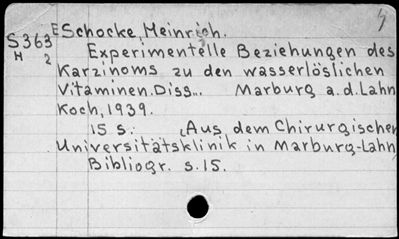 S363 ESchocke, Meinrich.
H 2 Experimentelle Beziehungen des
Karzinoms zu den wasserlöslichen
Vitaminen. Diss.. Marburg a.d. Lahn
Koch, 1939.
15 s. Aus dem Chirurgischen
Universitätsklinik in Marburg-Lahn
Bibliogr. s.15.